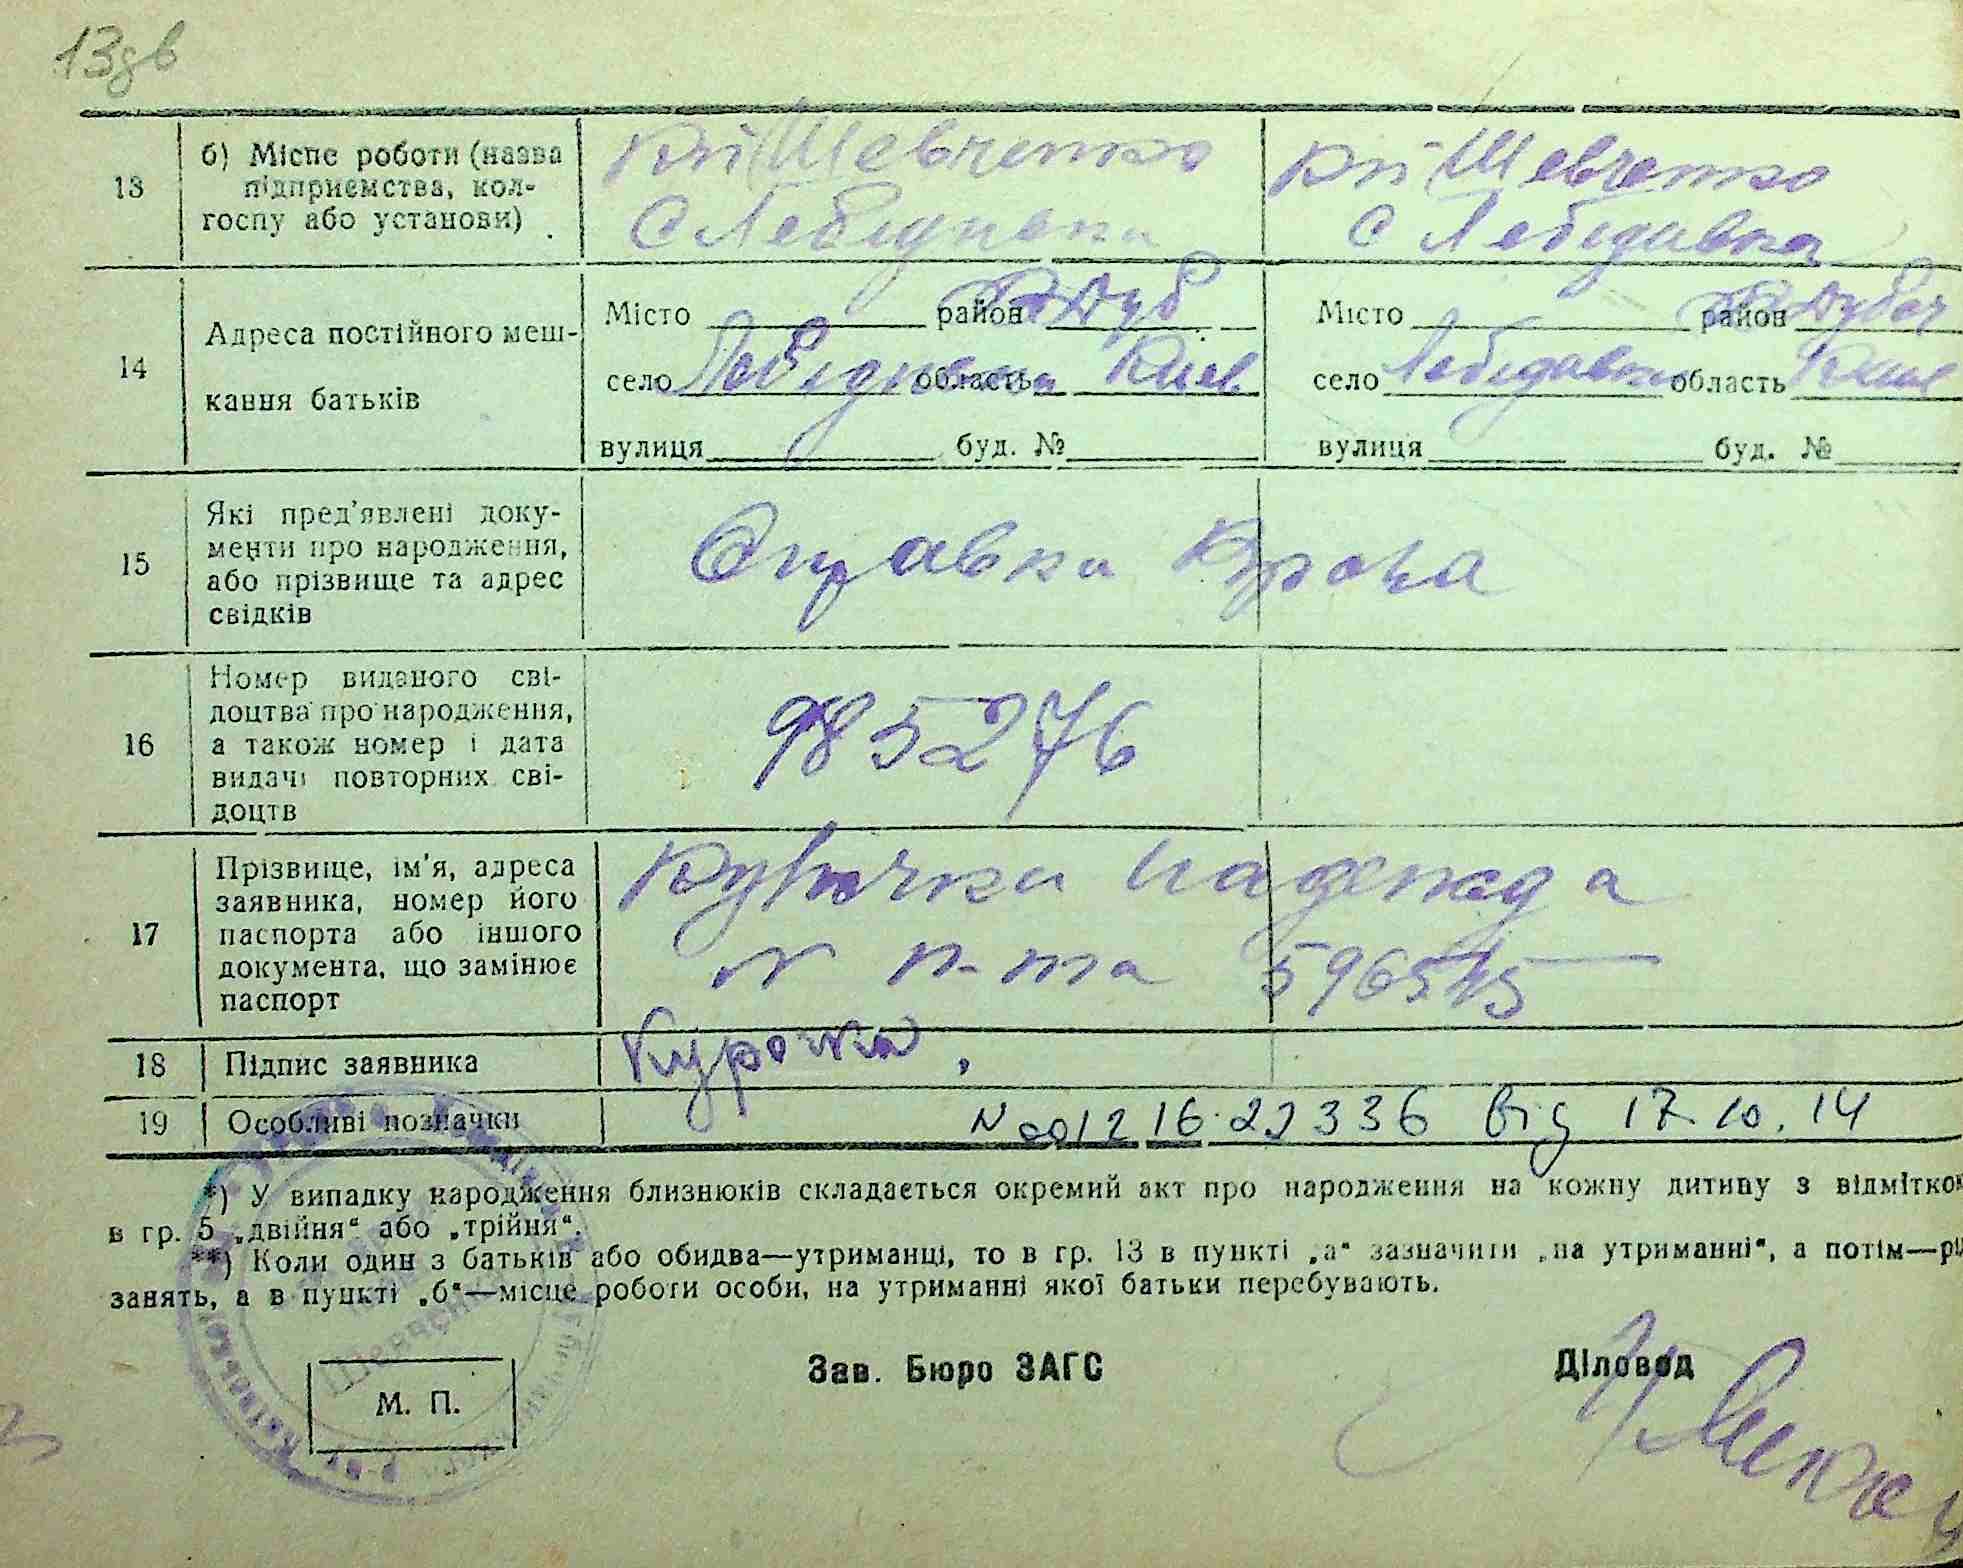 13зв
13
б) Місце роботи (назва
підприємства, кол-
госпу або установи)
К-п Шевченко
с Лебедивка
К-п Шевченко
с Лебедивка
14
Адреса постійного меш-
кання батьків
Місто район Дуб
село Лебедивка область Киев
вулиця буд. №
Місто район Дубеч
село Лебедивка область Киев
вулиця буд. №
15
Які пред'явлені доку-
менти про народження,
або прізвище та адрес
свідків
Справка
16
Номер виданого сві-
доцтва про народження,
а також номер і дата
видачі повторних сві-
доцтв
985276
17
Прізвище, ім'я, адреса
заявника, номер його
паспорта або іншого
документа, що замінює
паспорт
Курочка Надежда
№ п-та
18 Підпис заявника
Курочка
19 Особливі позначки
N 0012 16 22336 від 17.10.14
*) У випадку народження близнюків складається окремий акт про народження на кожну дитину з відміткою
в гр. 5 „двійня“ або „трійня“.
**) Коли один з батьків або обидва—утриманці, то в гр. 13 в пункті „а“ зазначити „на утриманні“, а потім—рід
занять, а в пункті „б“—місце роботи особи, на утриманні якої батьки перебувають.
Зав. Бюро ЗАГС
Діловод
М. П.